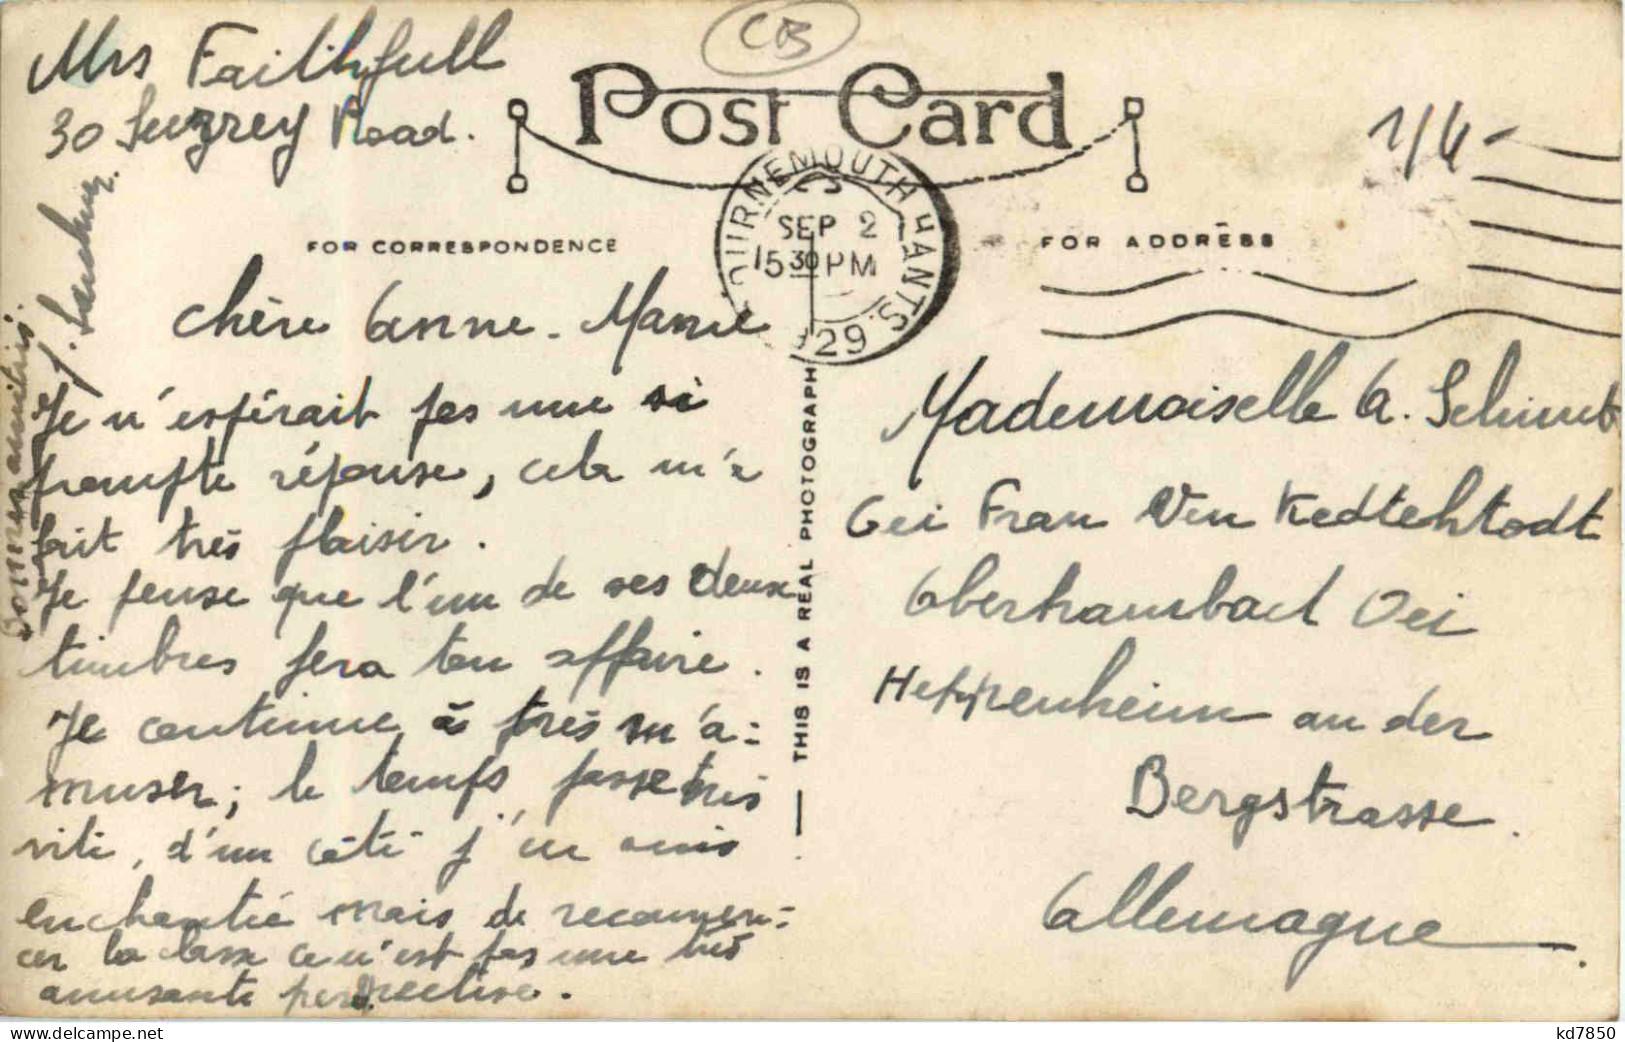 Mrs Faithfull
30 Surrey Road.
CB
POST CARD
1/4-
BOURNEMOUTH HANTS.
SEP 2
5 30 PM
1929
FOR CORRESPONDENCE
FOR ADDRESS
Chère Anne-Marie
Je n'espérait pas une si
prompte réponse, cela m'a
fait très plaisir.
Je pense que l'un de ses deux
timbres fera ton affaire.
Je continue à très m'a-
muser; le temps passe très
vite, d'un côté j'en suis
enchantée mais de recommen-
cer la classe ce n'est pas une très
amusante perspective.
Bonnes amitiés.
THIS IS A REAL PHOTOGRAPH
Mademoiselle A.
bei Frau
Oberhambach bei
Heppenheim an der
Bergstrasse.
Allemagne.
kd7850
www.delcampe.net